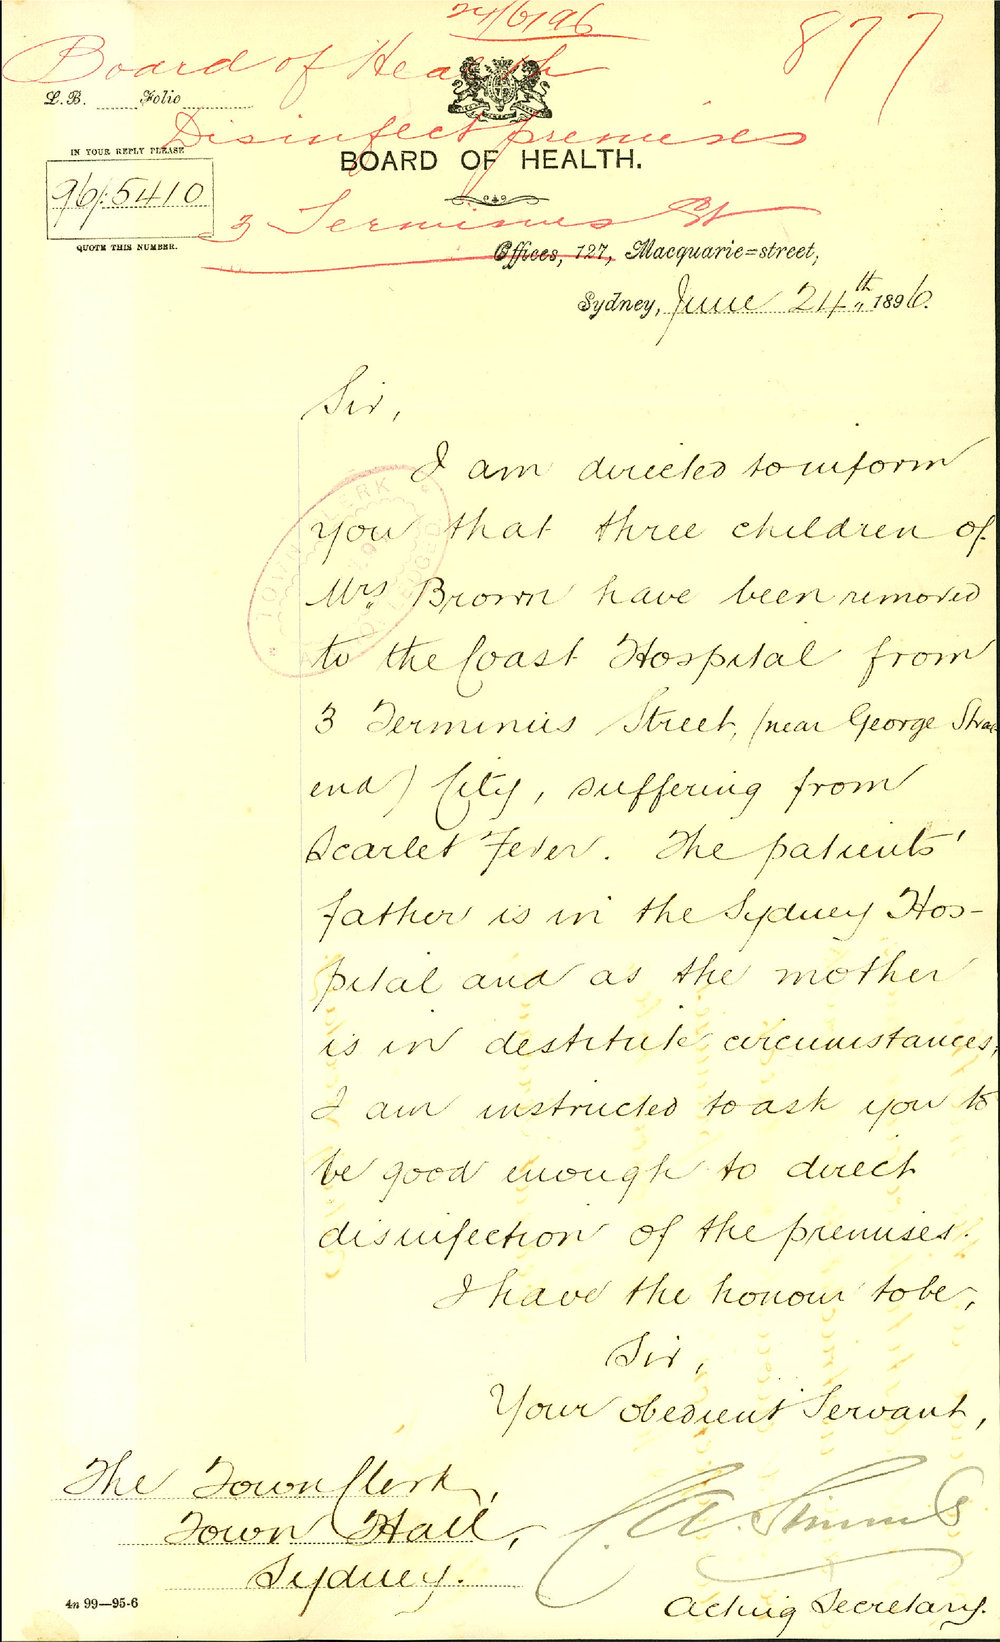 24/6/96
877
Board of Health
L.B. Folio
Disinfect premises
IN YOUR REPLY PLEASE
BOARD OF HEALTH.
96/5410
3 Terminus St
QUOTE THIS NUMBER.
Offices, 127, Macquarie=street,
Sydney, June 24th 1896.
Sir,
I am directed to inform
you that three children of
Mrs Brown have been removed
to the Coast Hospital from
3 Terminus Street, (near George Street
end) City, suffering from
Scarlet Fever. The patients'
father is in the Sydney Hos-
pital and as the mother
is in destitute circumstances,
I am instructed to ask you to
be good enough to direct
disinfection of the premises.
I have the honour to be,
Sir,
Your obedient Servant,
The Town Clerk,
Town Hall,
Sydney.
Acting Secretary.
4n 99—95-6
TOWN CLERK